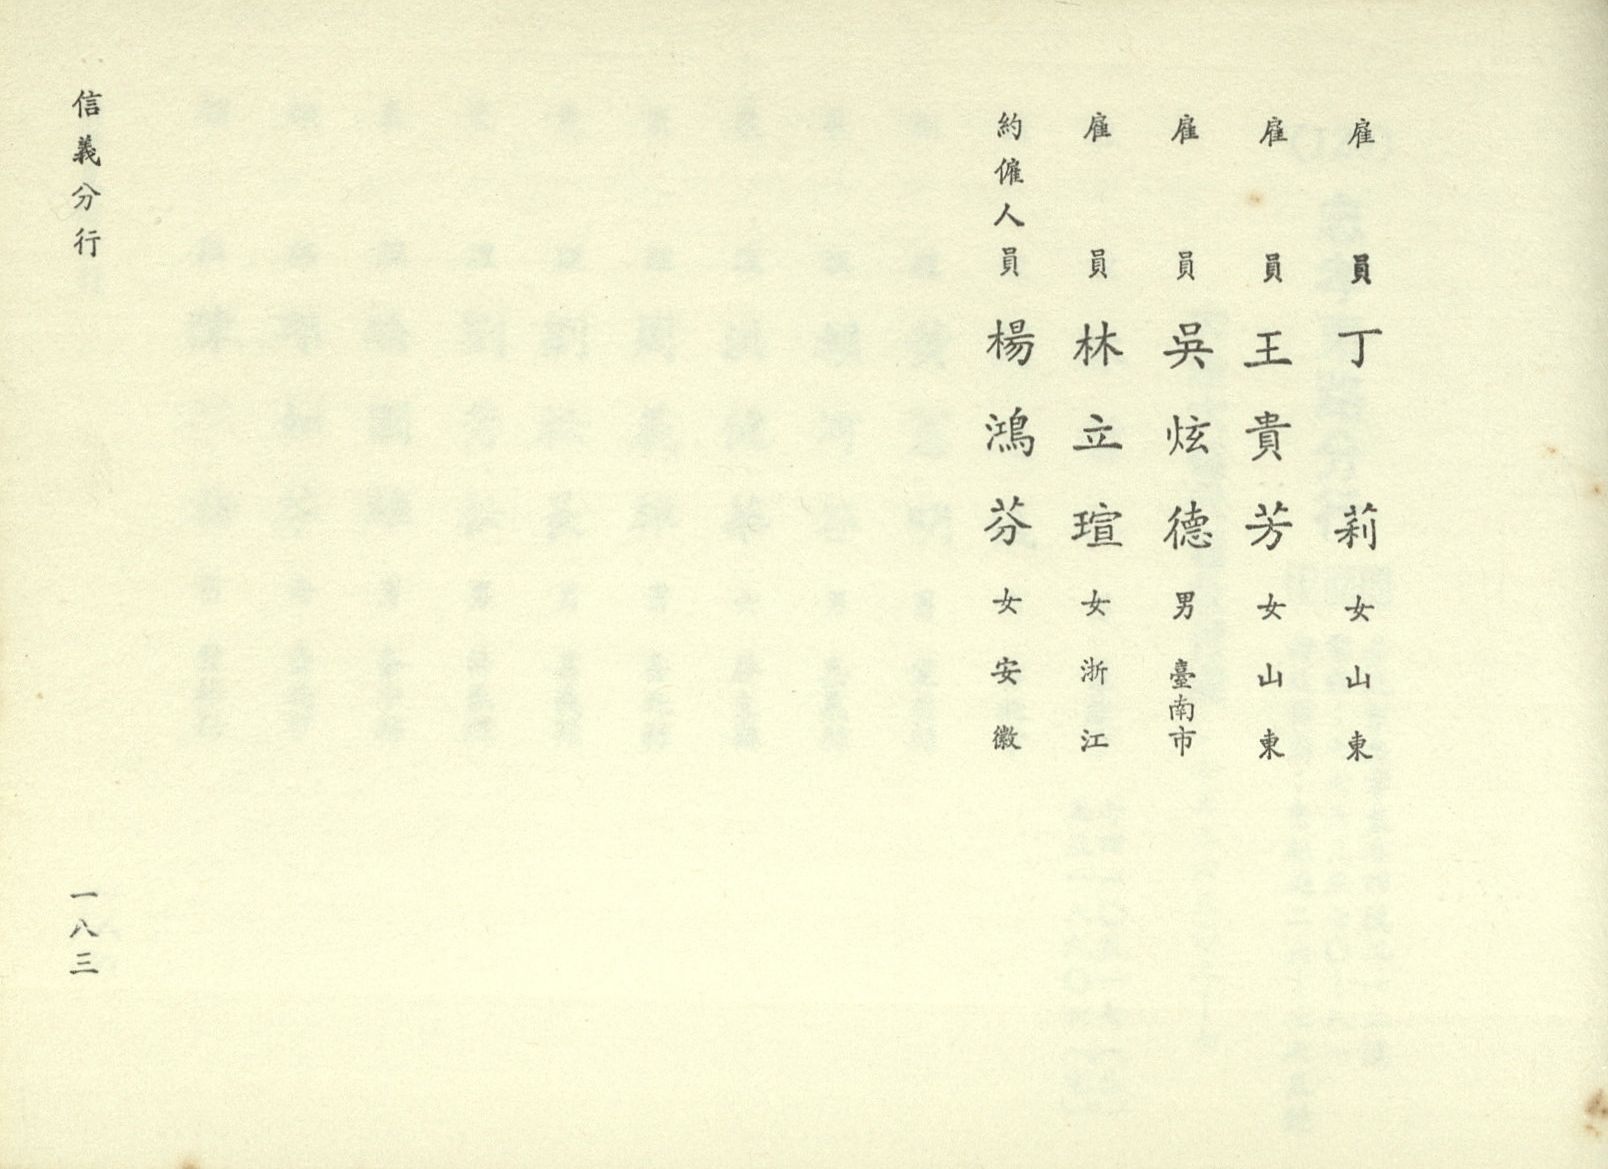 雇員丁莉女山東
雇員王貴芳女山東
雇員吳炫德男臺南市
雇員林立瑄女浙江
約僱人員楊鴻芬女安徽
信義分行
一八三